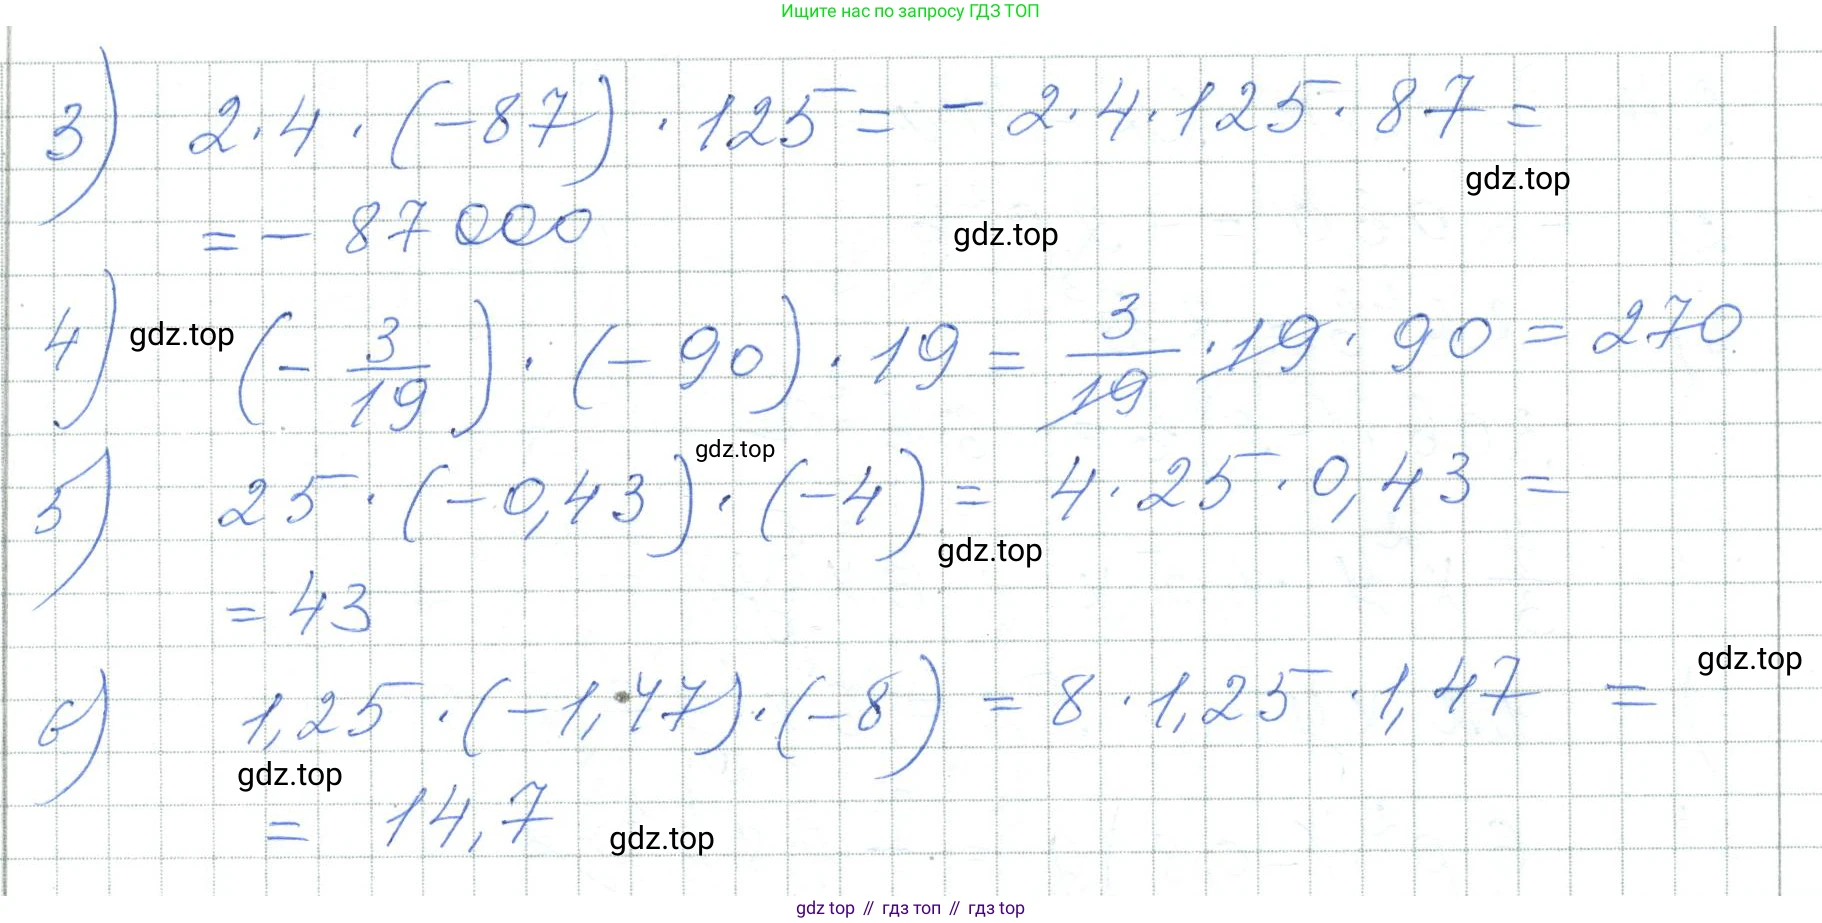 Ищите нас по запросу ГДЗ ТОП
3) 2·4·(-87)·125=-2·4·125·87=
gdz.top
=-87000 gdz.top
4) gdz.top (-3/19)·(-90)·19=3/19·19·90=270
gdz.top
5) 25·(-0,43)·(-4)=4·25·0,43=
gdz.top
=43
gdz.top
6) 1,25·(-1,47)·(-8)=8·1,25·1,47=
gdz.top
=14,7 gdz.top
gdz top // гдз топ // гдз top